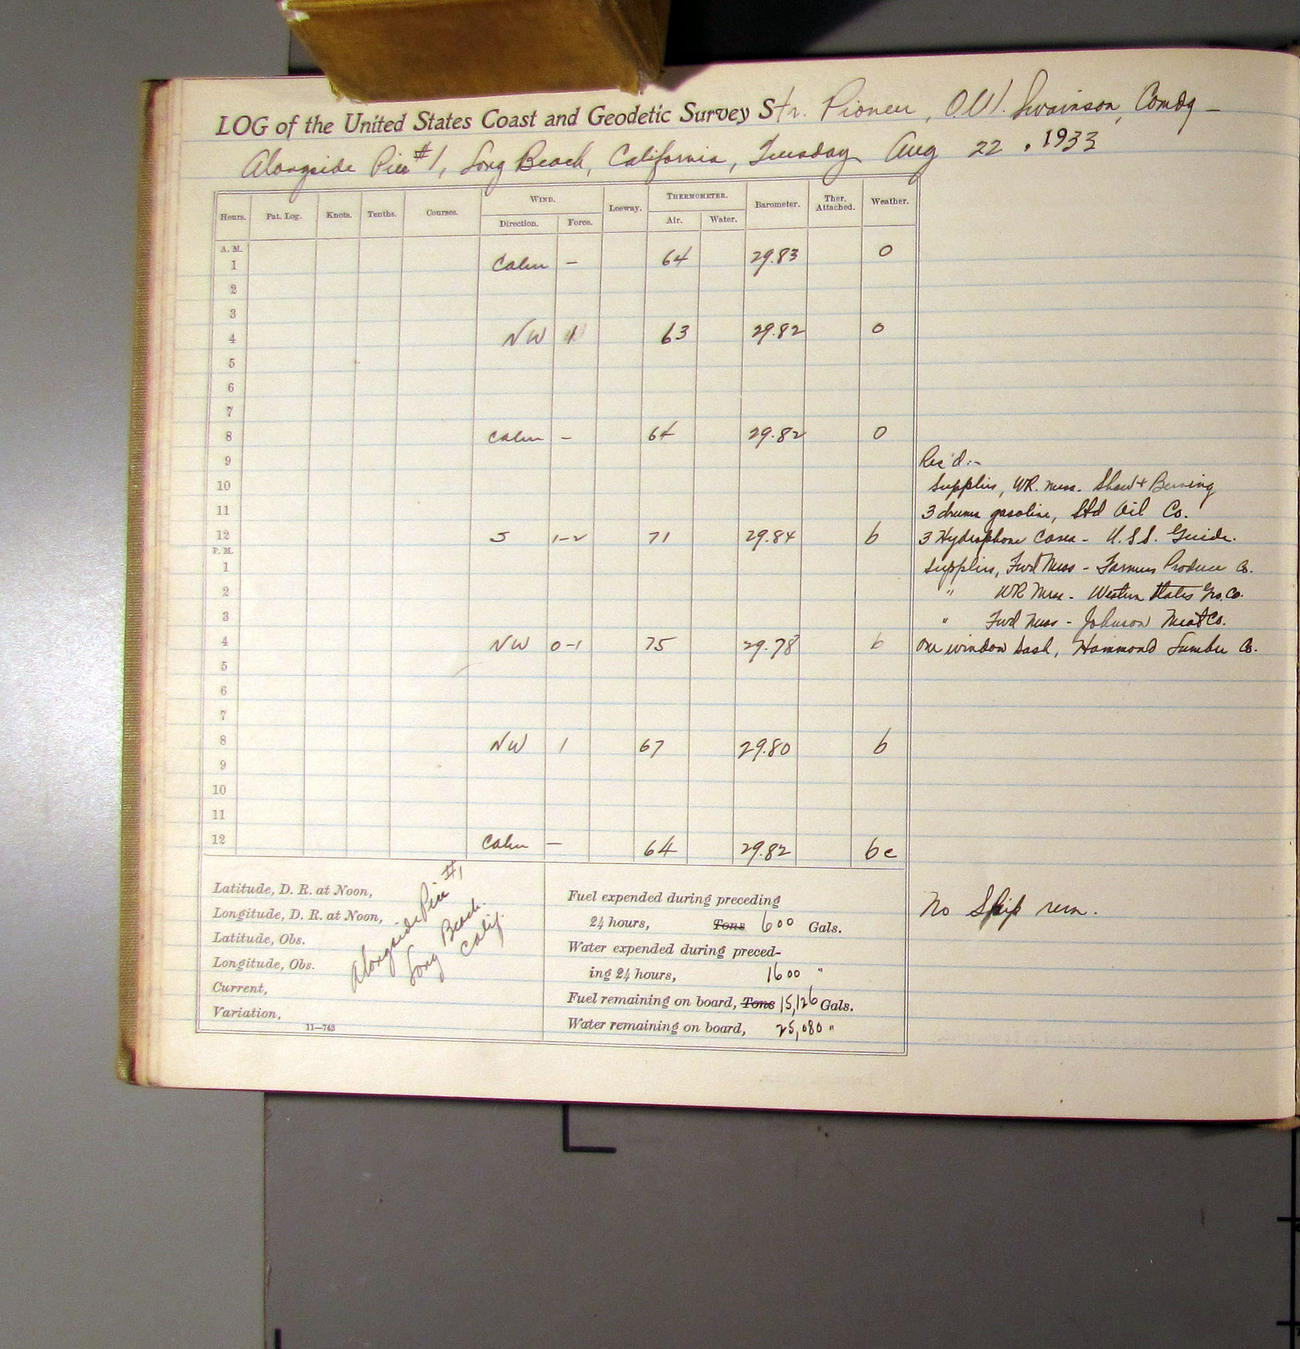 LOG of the United States Coast and Geodetic Survey Str. Pioneer, O.W. Swainson, Comdg -
Alongside Pier #1, Long Beach, California, Tuesday Aug 22, 1933
Hours. Pat. Log. Knots. Tenths. Courses. WIND. Leeway. THERMOMETER. Barometer. Ther. Attached. Weather.
Direction. Force. Air. Water.
A. M.
1 Calm - 64 29.83 0
2
3
4 NW 1 63 29.82 0
5
6
7
8 Calm - 64 29.82 0
9 Rec'd:-
10 Supplies, WR. mess. Shaw + Bersing
11 3 drums gasoline, Std Oil Co.
12 S 1-2 71 29.84 b 3 Hydrophone Cases - U.S.S. Guide.
P. M.
1 Supplies, Fwd Mess - Farmers Produce Co.
2 " WR Mess - Western States Gro. Co.
3 " Fwd Mess - Johnson Meat Co.
4 NW 0-1 75 29.78 b One window sash, Hammond Lumber Co.
5
6
7
8 NW 1 67 29.80 b
9
10
11
12 Calm - 64 29.82 bc
Latitude, D. R. at Noon,
Longitude, D. R. at Noon,
Latitude, Obs.
Longitude, Obs.
Current,
Variation,
Alongside Pier #1
Long Beach.
Calif.
11—743
Fuel expended during preceding
24 hours, Tons 600 Gals.
Water expended during preced-
ing 24 hours, 1600 "
Fuel remaining on board, Tons 15,126 Gals.
Water remaining on board, 25,080 "
No Ship rem.